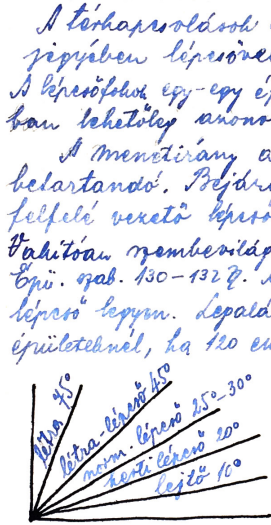 A térkapcsolások
jegyében lépcsőve
A lépcsőfokok egy-egy é
ban lehetőleg azono
A menetirány a
betartandó. Bejár
felfelé vezető lépcső
Vakítóan szembevilág
Épü. szab. 130-132 §.
lépcső legyen. Legalá
épületeknél, ha 120 cm
létra 75°
létra-lépcső 45°
norm. lépcső 25°-30°
kerti lépcső 20°
lejtő 10°